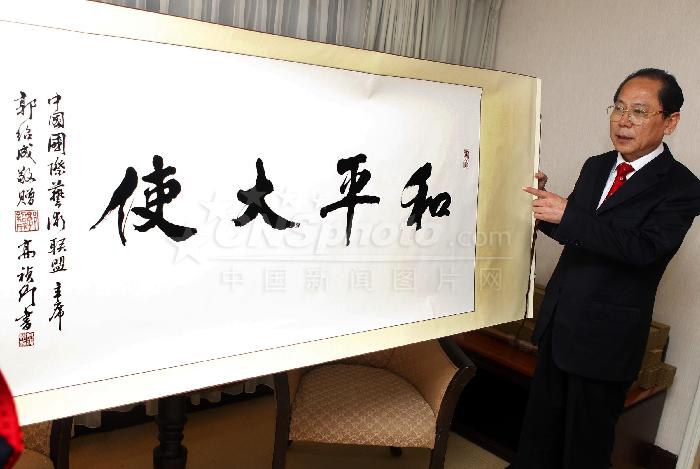 和平大使
中国國際藝術联盟主席
郭绍成敬贈
高禎行書
CNSphoto.com
中国新闻图片网